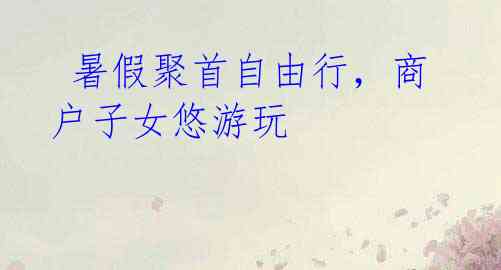 暑假聚首自由行，商
户子女悠游玩